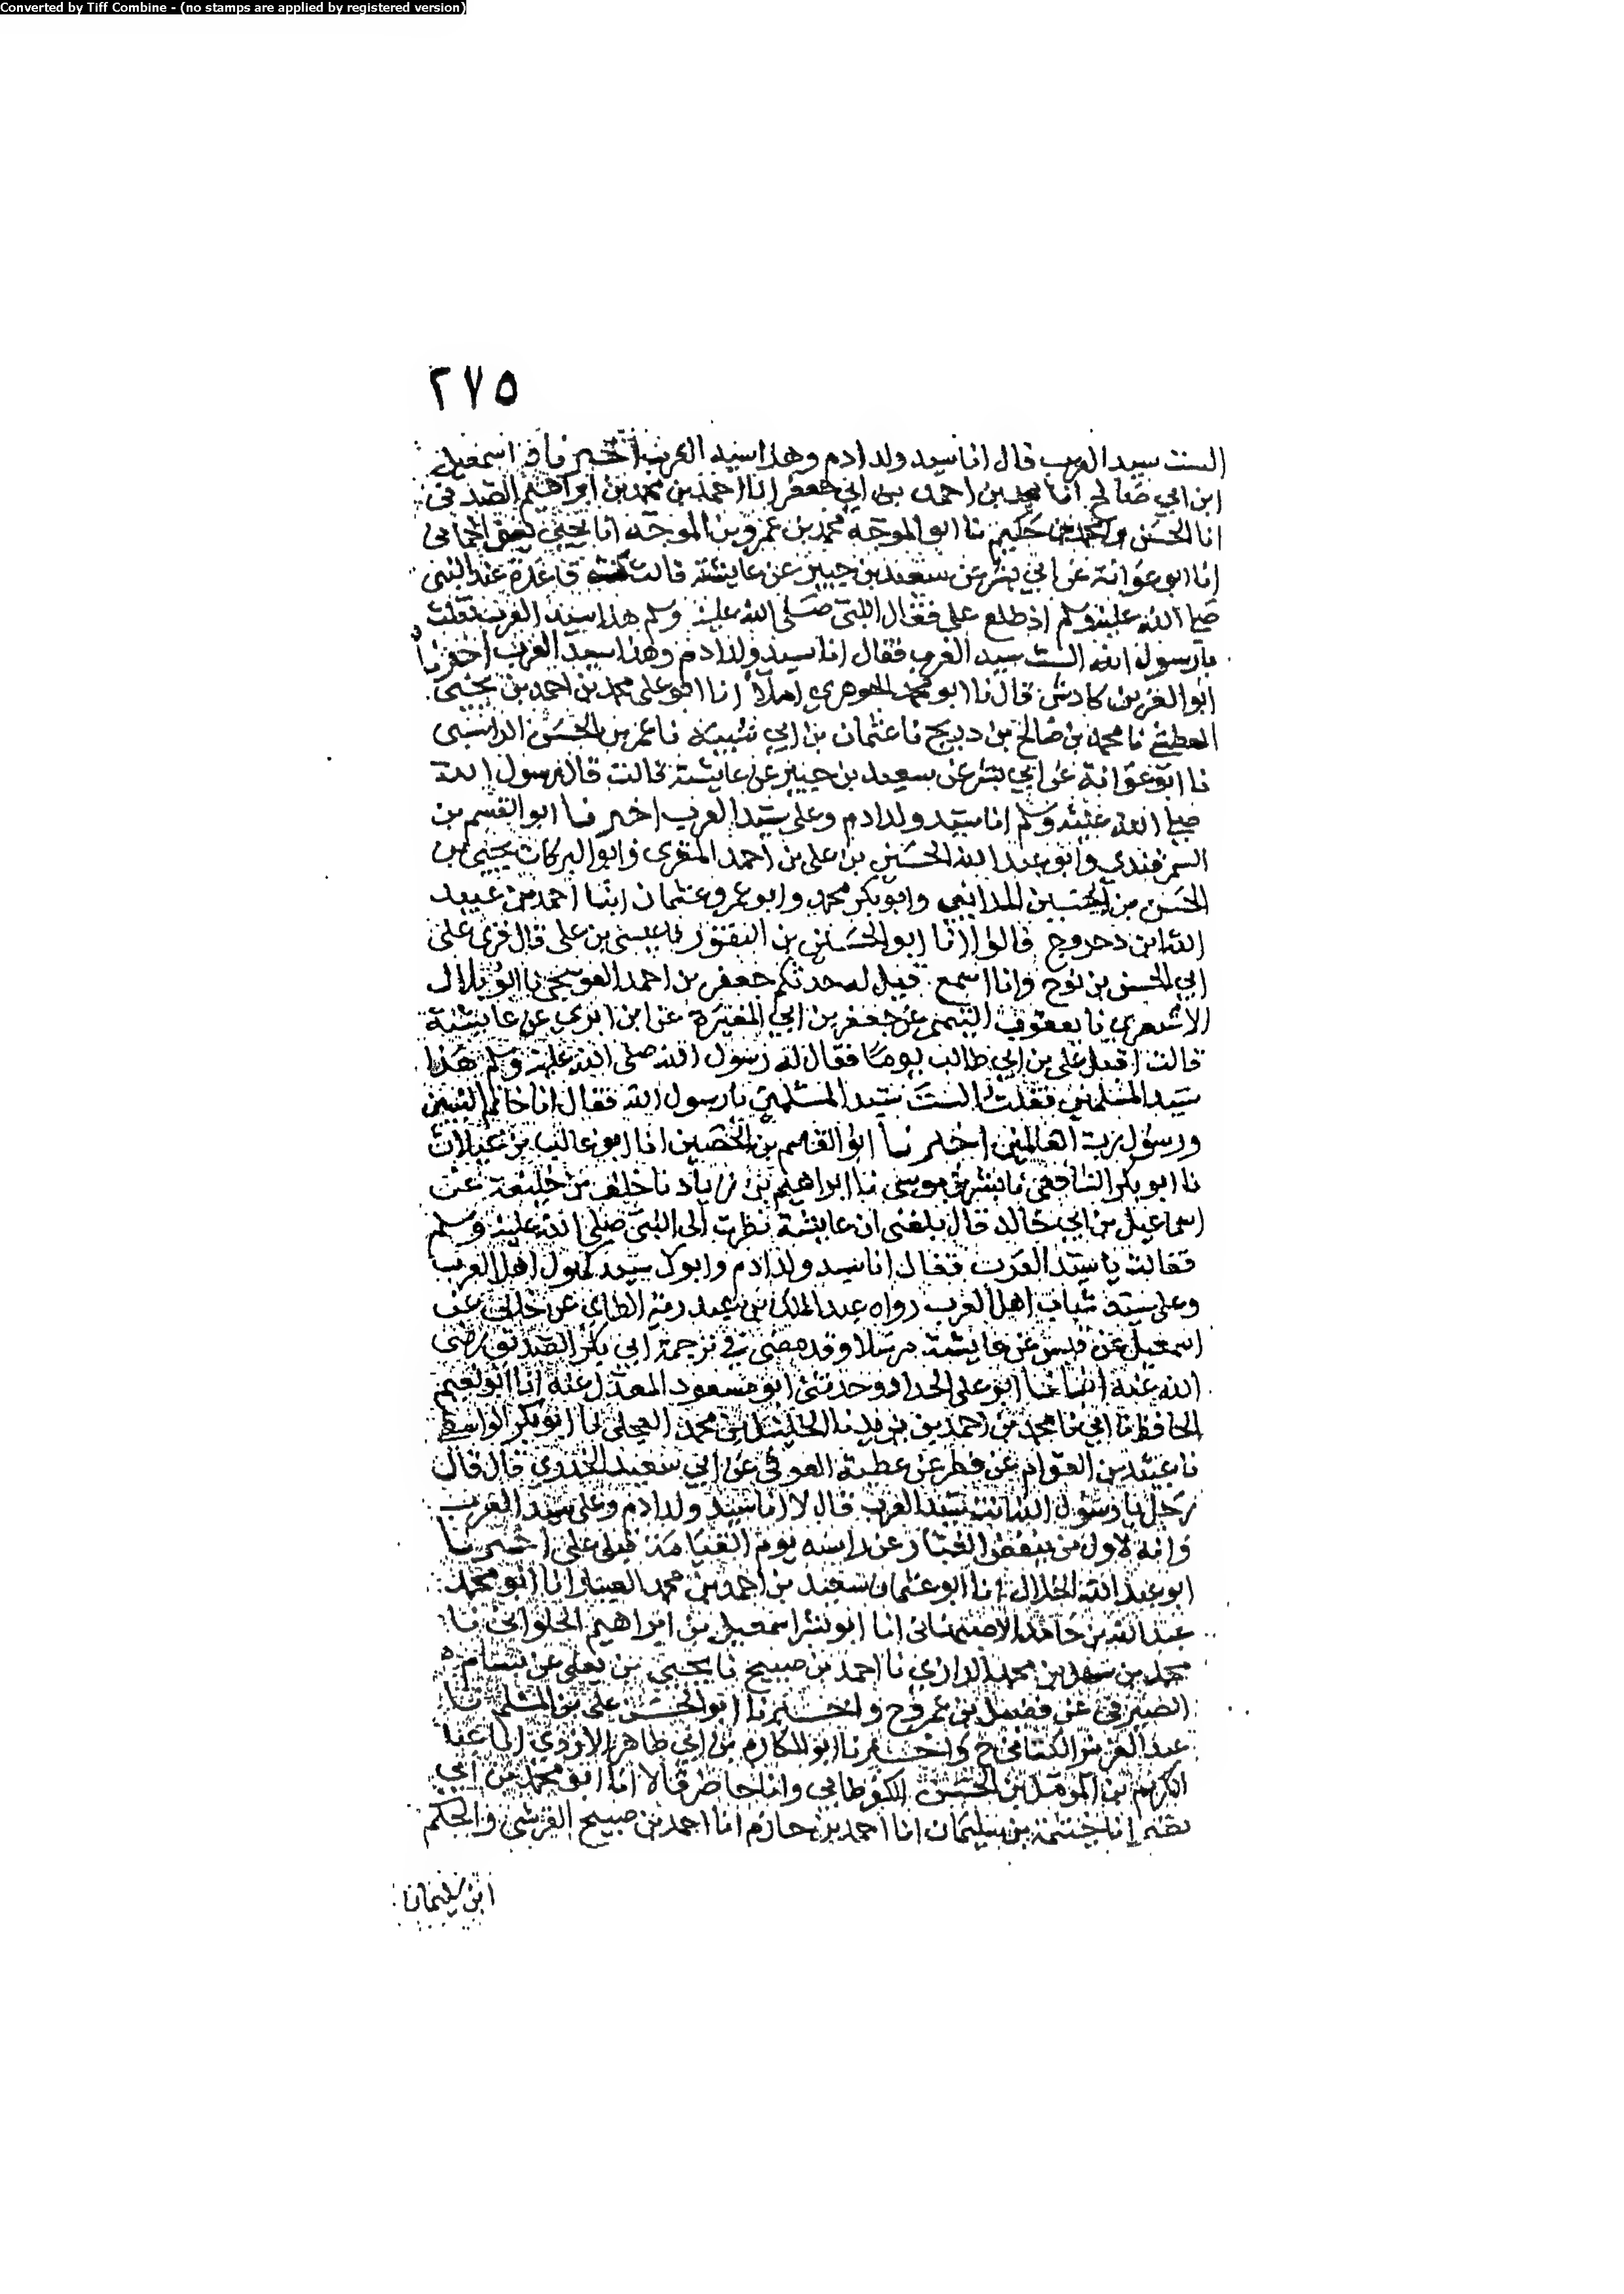 Converted by Tiff Combine - (no stamps are applied by registered version)
٢٧٥
الست سيد العرب قال انا سيد ولد ادم وهذا سيد العرب اخبرنا اسمعيل
ابن ابي صالح انا بن احمد بن ابي جعفر انا احمد بن محمد بن ابراهيم الصدفى
انا الحسن بن محمد بن حكيم نا ابو الموجه محمد بن عمرو بن الموجه انا يحيى الحمانى
انا ابو عوانة عن ابي بشر عن سعيد بن جبير عن عايشة قالت كنت قاعدة عند النبى
صلى الله عليه وسلم اذ طلع على فقال النبى صلى الله عليه وسلم هذا سيد العرب فقلت
يا رسول الله الست سيد العرب فقال انا سيد ولد ادم وهذا سيد العرب اخبرنا
ابو العز بن كادش قال نا ابو محمد الجوهري املأ انا ابو على محمد بن احمد بن يحيى
العطشي نا محمد بن صالح بن دريج نا عثمان بن ابي شيبة نا عمر بن الحسن الراسبى
نا ابو عوانة عن ابي بشر عن سعيد بن جبير عن عايشة قالت قال رسول الله
صلى الله عليه وسلم انا سيد ولد ادم وعلى سيد العرب اخبرنا ابو القسم بن
السمرقندي وابو عبد الله الحسين بن على بن احمد المقرى وابو البركات يحيى بن
الحسن بن الحسين المدايني وابو بكر محمد وابو عمرو عثمان ابنا احمد بن عبيد
الله ابن دحروج قالوا انا ابو الحسين بن النقور نا عيسى بن على قال قرى على
ابي الحسن بن نوح وانا اسمع قيل له حدثكم جعفر بن احمد العوسجى نا ابو بلال
الاشعري نا يعقوب التيمى عن جعفر بن ابي المغيرة عن ابن ابزي عن عايشة
قالت اقبل على بن ابي طالب يوما فقال له رسول الله صلى الله عليه وسلم هذا
سيد المسلمين فقلت الست سيد المسلمين يا رسول الله فقال انا خاتم النبيين
ورسول رب العالمين اخبرنا ابو القاسم بن الحصين انا ابو طالب بن غيلان
نا ابو بكر الشافعى نا بشر بن موسى نا ابراهيم بن زياد نا خلف بن خليفة عن
اسماعيل بن ابي خالد قال بلغنى ان عايشة نظرت الى النبى صلى الله عليه وسلم
فقالت يا سيد العرب فقال انا سيد ولد ادم وابوك سيد كهول اهل العرب
وعلى سيد شباب اهل العرب رواه عبد الملك بن عبد ربه الطاى عن خلف عن
اسمعيل عن قيس عن عايشة مرسلا وقد مضى في ترجمة ابي بكر الصديق رضى
الله عنه انبانا ابو على الحداد وحدثنى ابو مسعود المعدل عنه انا ابو نعيم
الحافظ نا ابي نا محمد بن احمد بن يزيد نا الخليل بن محمد العجلى نا ابو بكر الواسطى
نا عبيد بن العوام عن فطر عن عطية العوفى عن ابي سعيد الخدري قال قال
رجل يا رسول الله انت سيد العرب قال لا انا سيد ولد ادم وعلى سيد العرب
وانه لاول من ينفض الغبار عن راسه يوم القيامة قبلى على اخبرنا
ابو عبد الله الخلال انا ابو عثمان سعيد بن احمد بن محمد العيار انا ابو محمد
عبد الله بن حامد الاصبهانى انا ابو بشر اسمعيل بن ابراهيم الحلوانى نا
محمد بن سعد بن محمد الرازي نا احمد بن صبيح نا يحيى بن يعلى عن بسام
الصيرفى عن فضيل بن عمرو ح واخبرنا ابو الحسن على بن المسلم نا
عبد العزيز الكتانى ح واخبرنا ابو المكارم بن ابي طاهر الازدي انا عبد
الكريم بن المومل بن الحسن الكفرطابى وانا حاضر قالا انا ابو محمد بن ابي
نصر انا خيثمة بن سليمان انا احمد بن حازم انا احمد بن صبيح القرشى والحكم
ابن سليمان